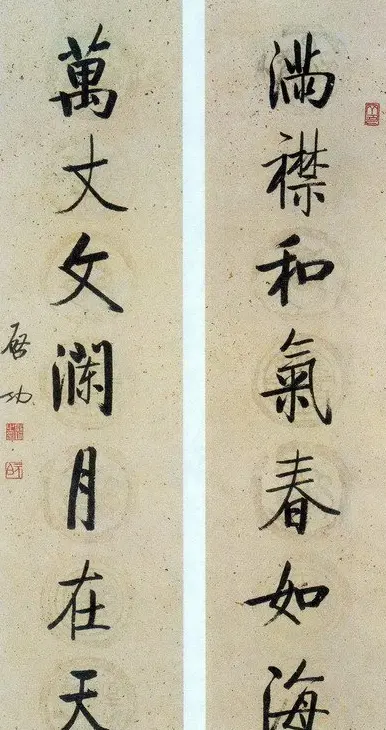 满襟和氣春如海
萬丈文澜月在天
啟功